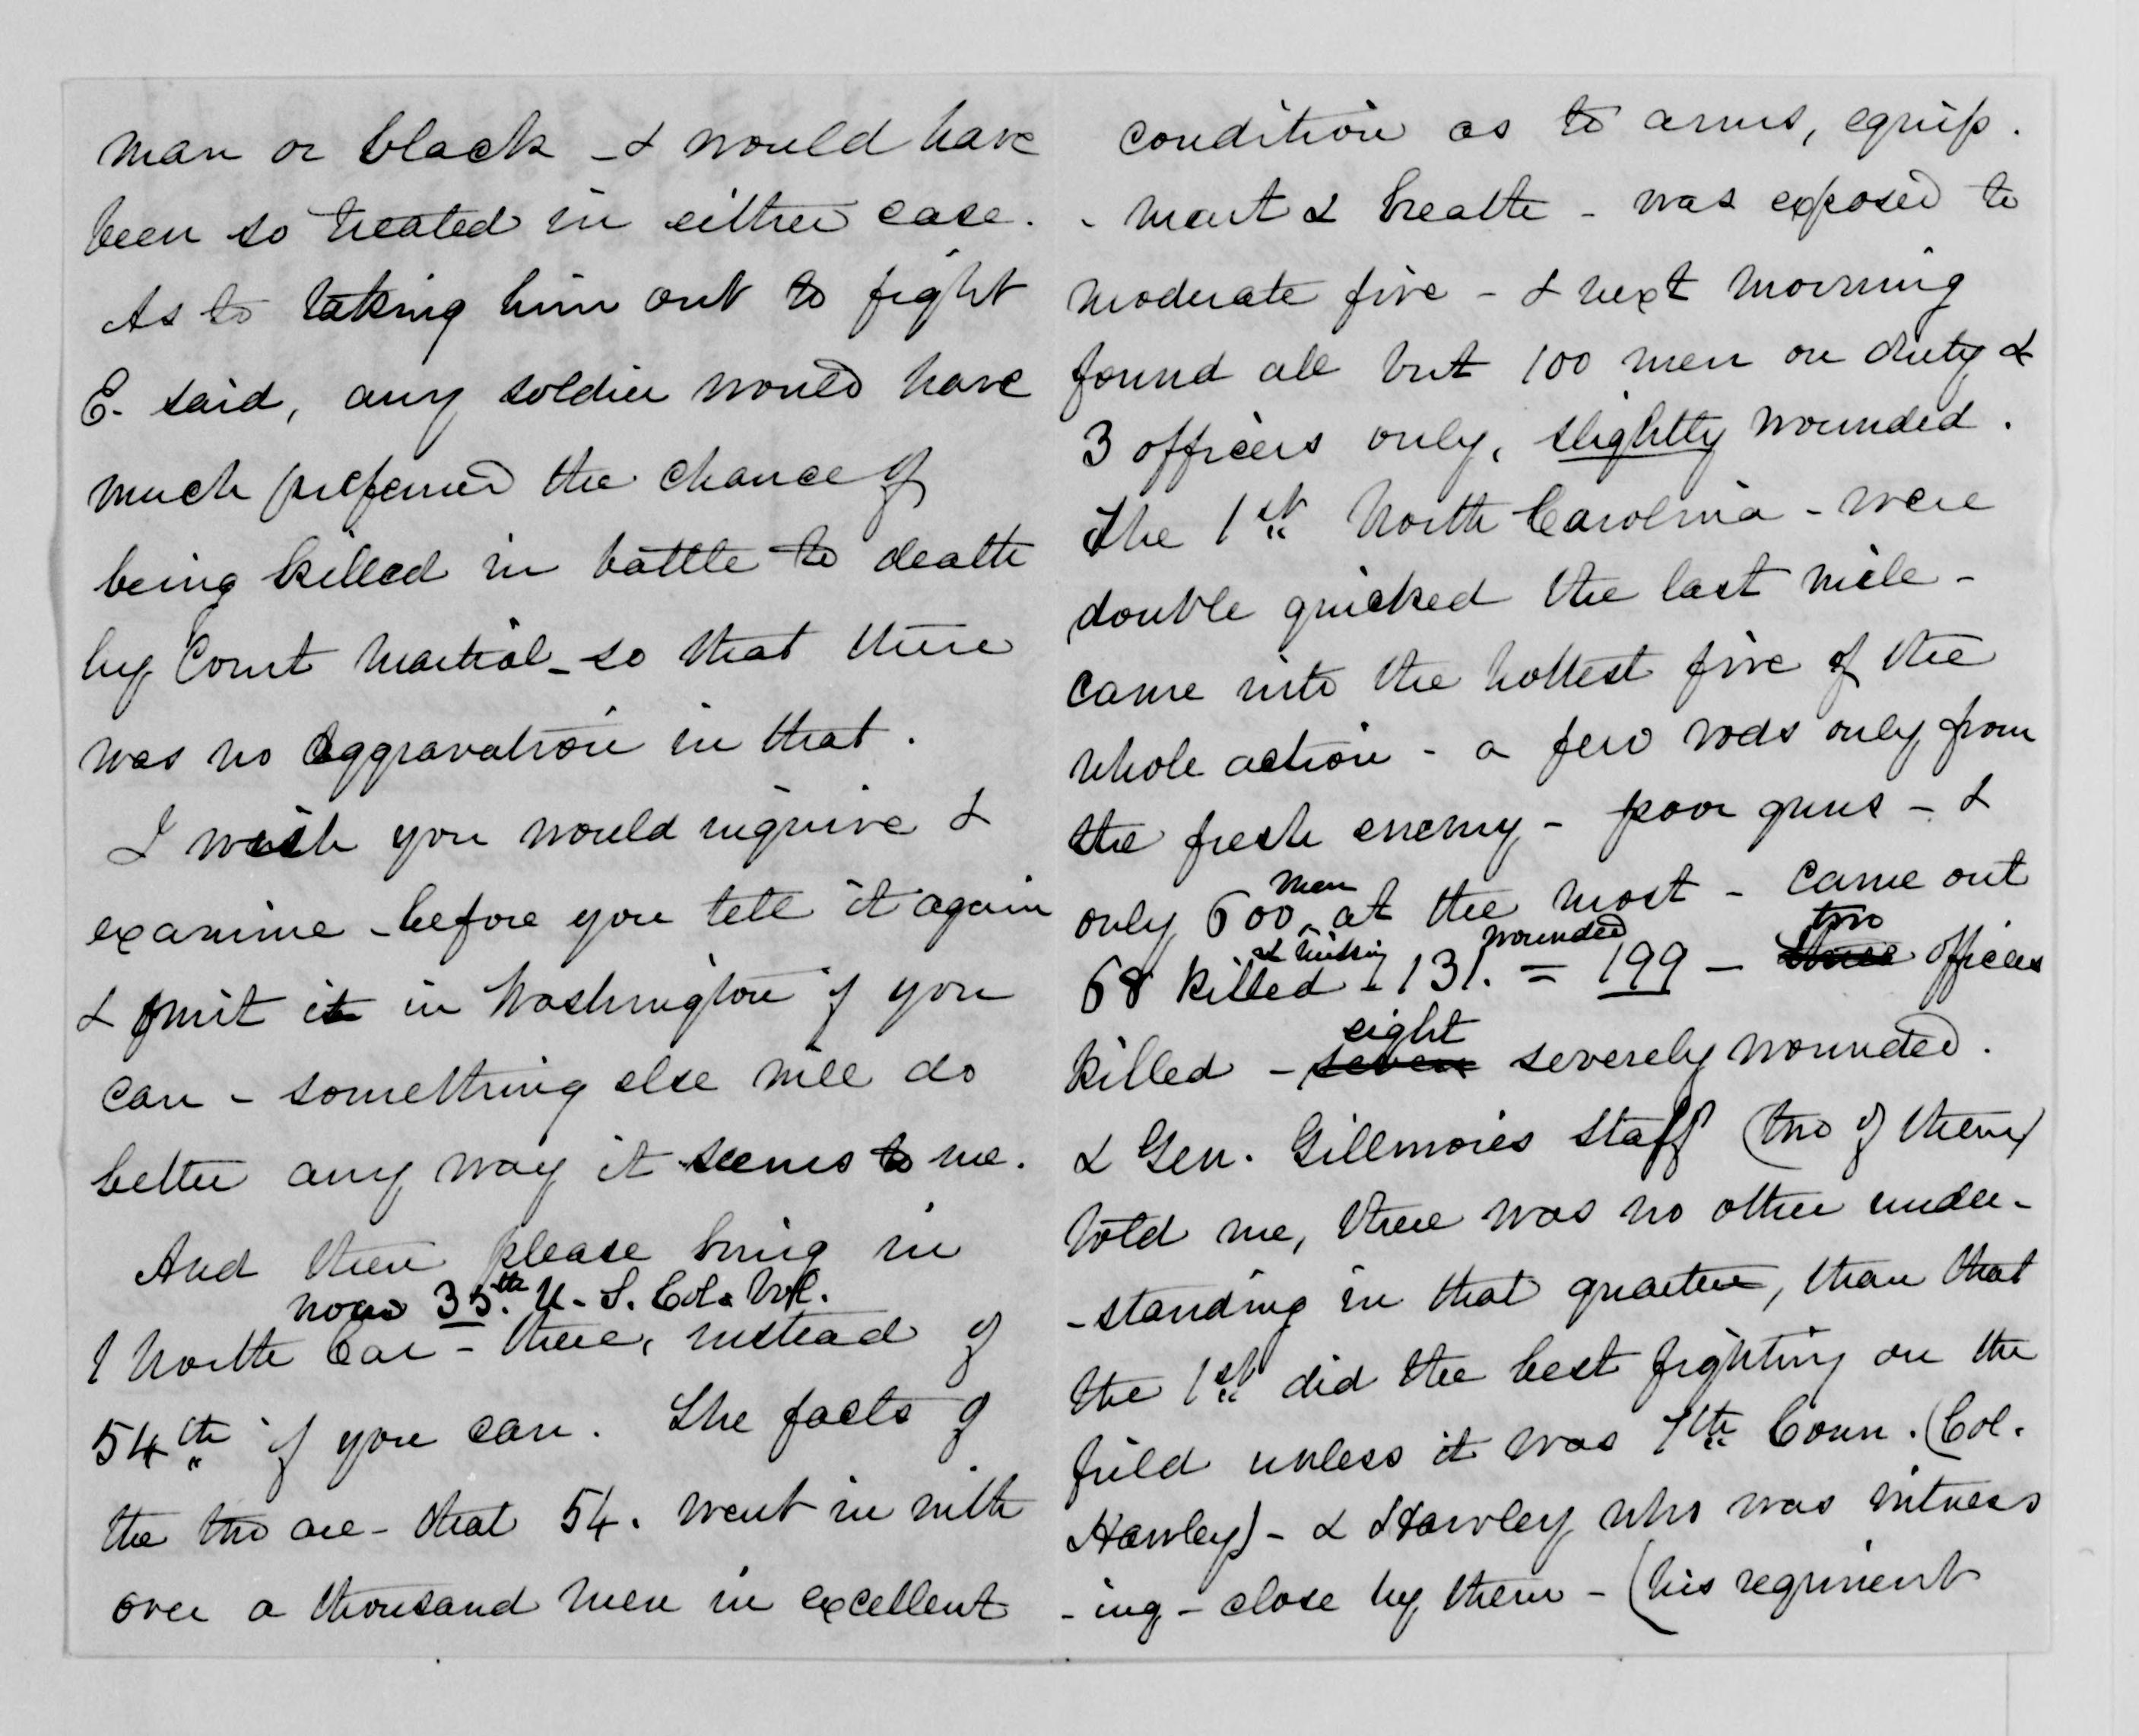 man or black - & would have
been so treated in either case.
As to taking him out to fight
E. said, any soldier would have
much preferred the chance of
being killed in battle to death
by Court Martial - so that there
was no aggravation in that.
I wish you would inquire &
examine - before you tell it again
& omit it in Washington if you
can - something else will do
better any way it seems to me.
And then please bring in
now 35th. U. S. Col. Vol.
1 North Car - there, instead of
54th if you can. The facts of
the two are - that 54. went in with
over a thousand men in excellent
condition as to arms, equip.
- ment & health - was exposed to
moderate fire - & next morning
found all but 100 men on duty &
3 officers only, slightly wounded.
The 1st North Carolina - were
double quicked the last mile -
came into the hottest fire of the
whole action - a few rods only from
the fresh enemy - poor guns - &
men
only 600 at the most - came out
& missing wounded two
68 killed - 131. = 199 - three officers
eight
killed - seven severely wounded.
& Gen. Gillmores Staff (two of them)
told me, there was no other under-
-standing in that quarter, than that
the 1st did the best fighting on the
field unless it was 7th Conn. (Col.
Hawley) - & Hawley who was witness
-ing - close by them - (his regiment